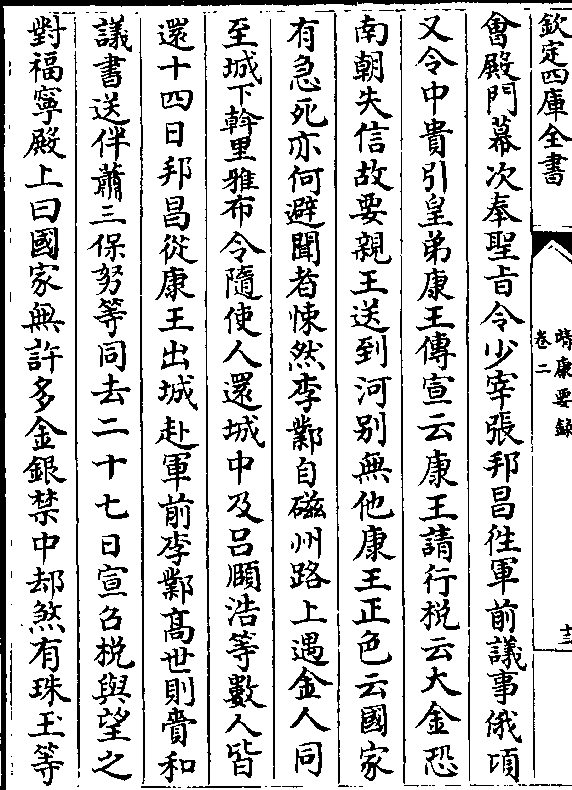 欽定四庫全書
靖康要錄
卷二
十三
會殿門幕次奉聖旨令少宰張邦昌徃軍前議事俄頃
又令中貴引皇弟康王傳宣云康王請行梲云大金恐
南朝失信故要親王送到河别無他康王正色云國家
有急死亦何避聞者悚然李鄴自磁州路上遇金人同
至城下斡里雅布令隨使人還城中及吕頤浩等數人皆
還十四日邦昌從康王出城赴軍前李鄴高世則賫和
議書送伴蕭三保努等同去二十七日宣召梲與望之
對福寧殿上曰國家無許多金銀禁中却煞有珠玉等